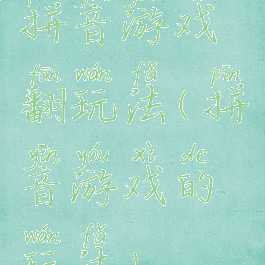 拼音游戏
fān wán fǎ pīn
翻玩法(拼
yīn yóu xì de
音游戏的
wán fǎ
玩法)